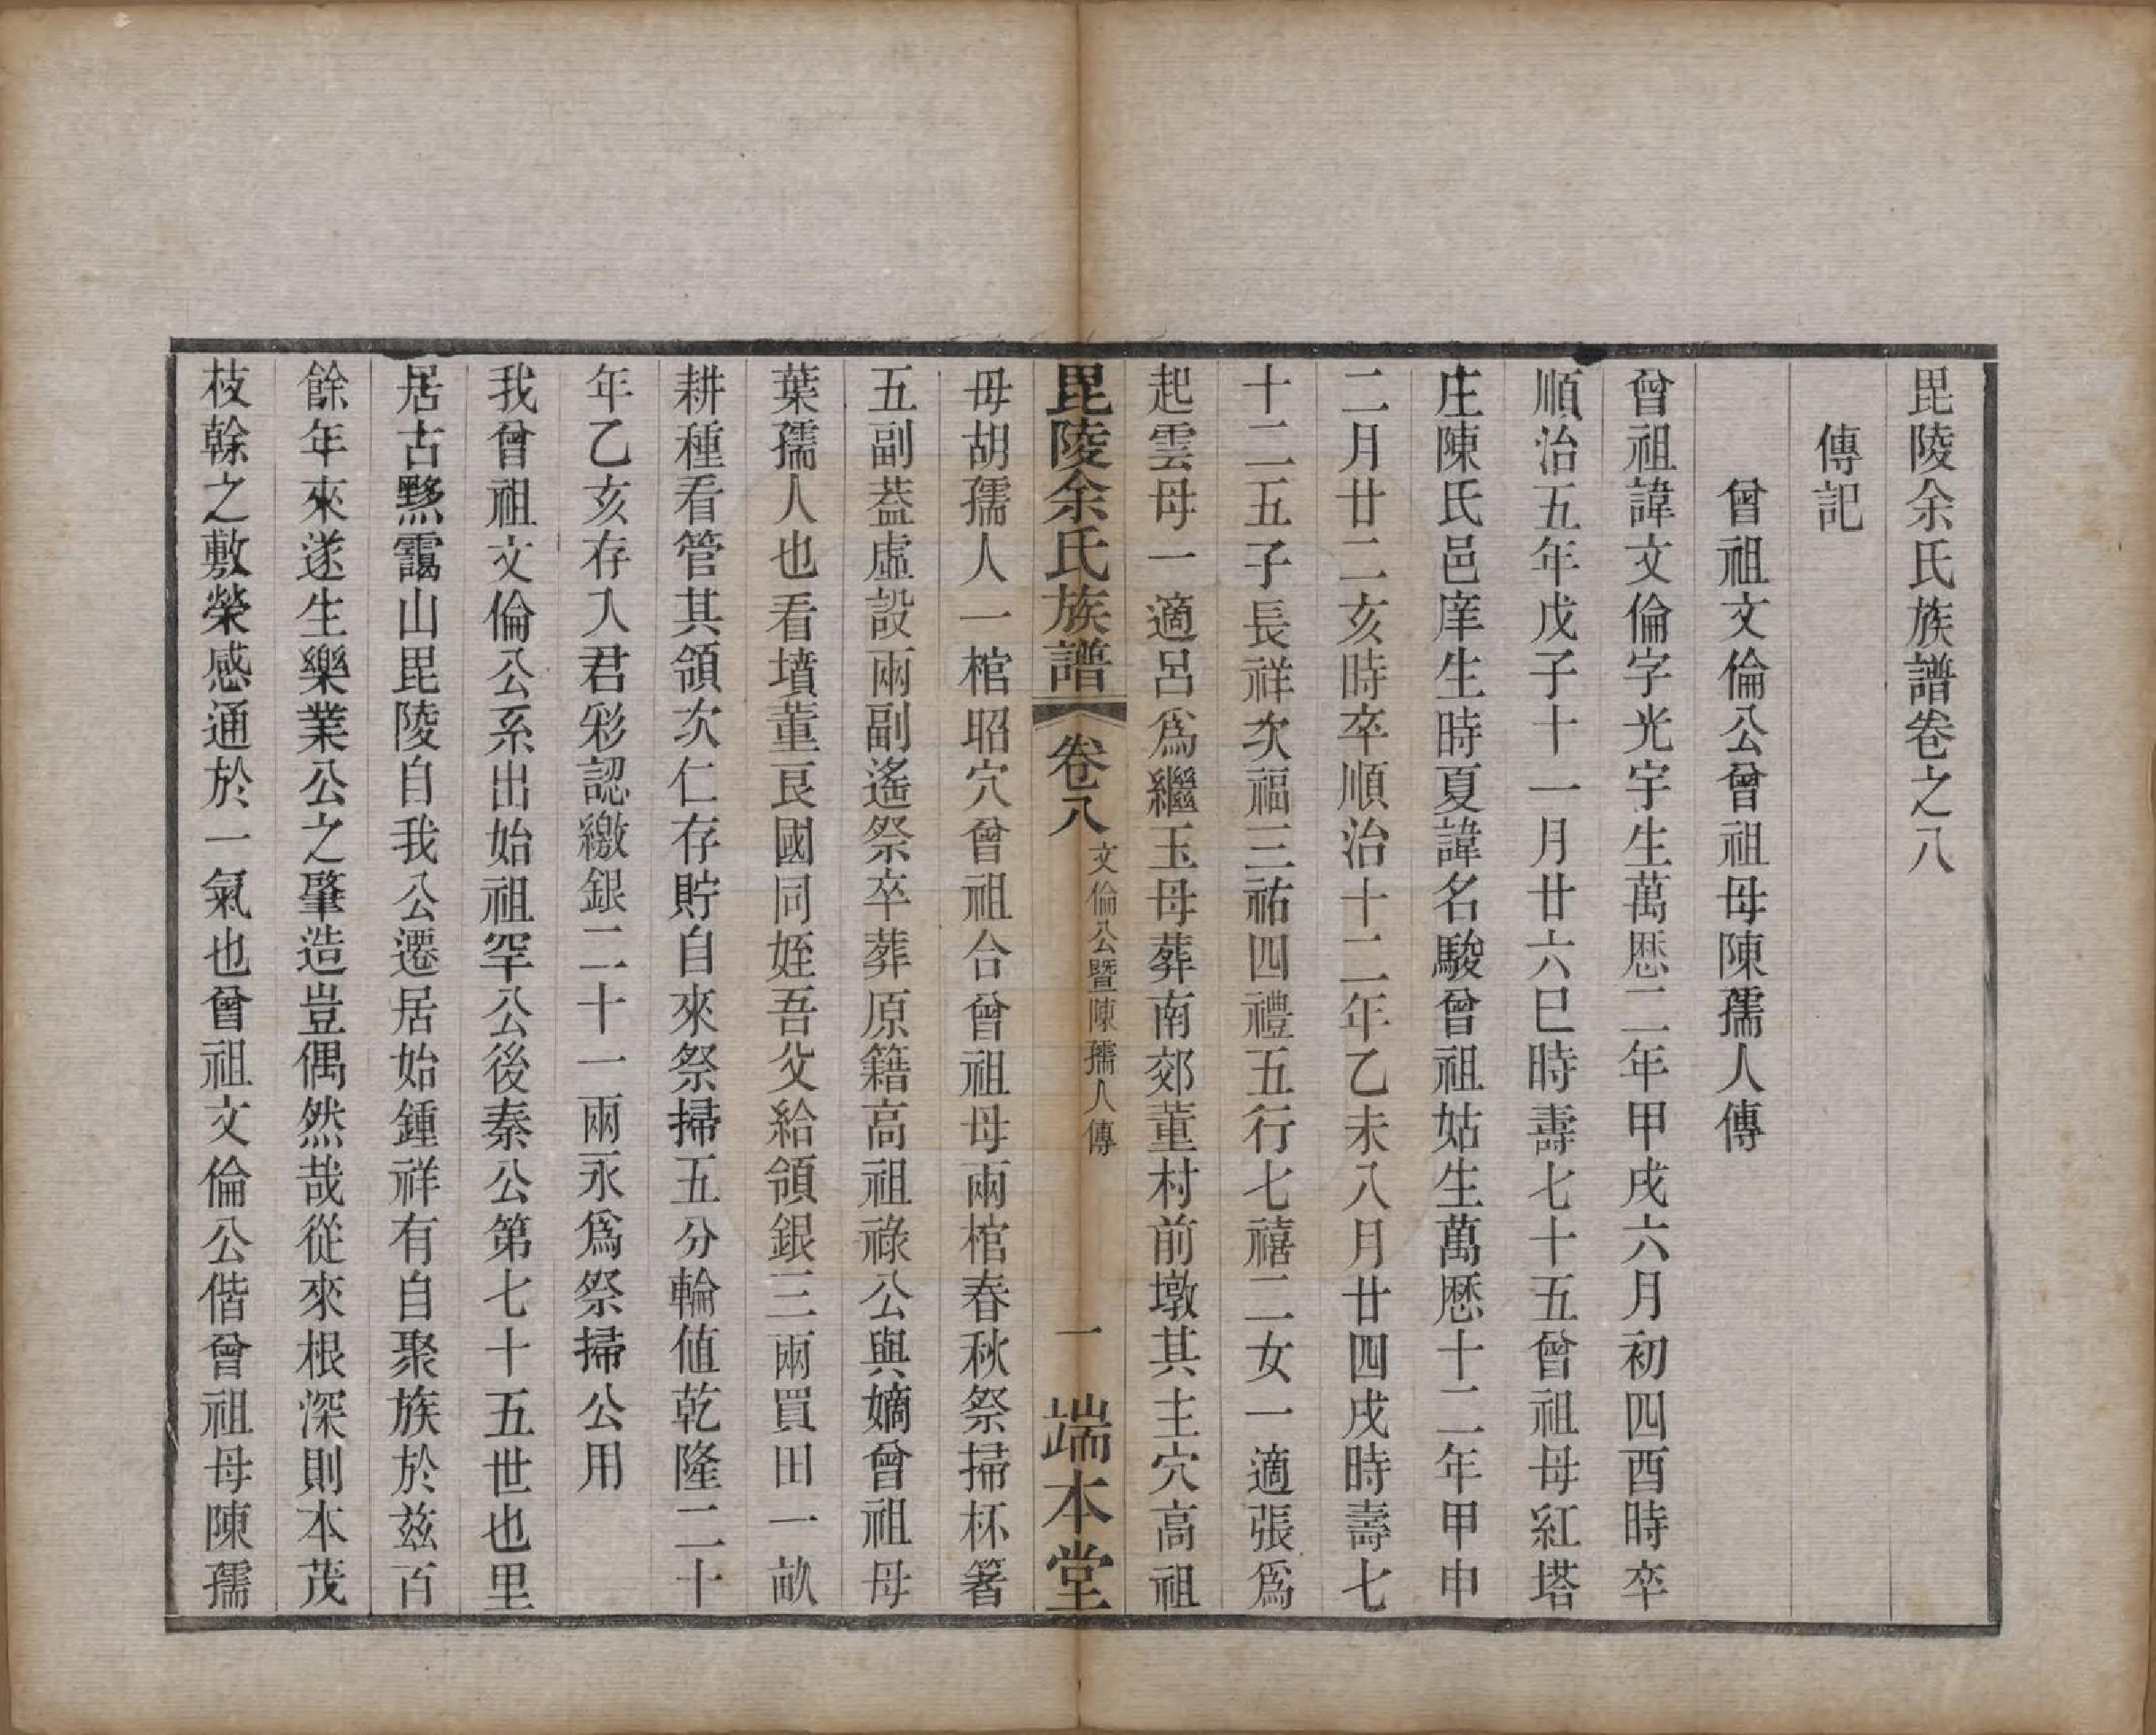 毘陵余氏族譜卷之八
傳記
曾祖文倫公曾祖母陳孺人傳
曾祖諱文倫字光宇生萬厯二年甲戌六月初四酉時卒
順治五年戊子十一月廿六巳時壽七十五曾祖母紅塔
庄陳氏邑庠生時夏諱名駿曾祖姑生萬厯十二年甲申
二月廿二亥時卒順治十二年乙未八月廿四戌時壽七
十二五子長祥次福三祐四禮五行七禧二女一適張爲
起雲母一適呂爲繼玉母葬南郊董村前墩其主穴高祖
毘陵余氏族譜 卷八 文倫公曁陳孺人傳 一 端本堂
母胡孺人一棺昭穴曾祖合曾祖母兩棺春秋祭掃杯箸
五副葢虛設兩副遙祭卒葬原籍高祖祿公與嫡曾祖母
葉孺人也看墳董艮國同姪吾父給領銀三兩買田一畝
耕種看管其領次仁存貯自來祭掃五分輪値乾隆二十
年乙亥存入君彩認繳銀二十一兩永爲祭掃公用
我曾祖文倫公系出始祖罕公後秦公第七十五世也里
居古黟靄山毘陵自我公遷居始鍾祥有自聚族於茲百
餘年來遂生樂業公之肇造豈偶然哉從來根深則本茂
枝榦之敷榮感通於一氣也曾祖文倫公偕曾祖母陳孺